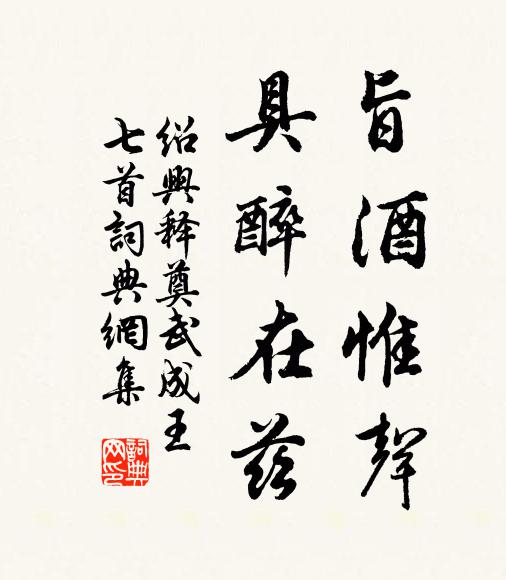 旨酒惟聲
具醉在茲
紹興释奠武成王
七首詞典網集
詞典
网印